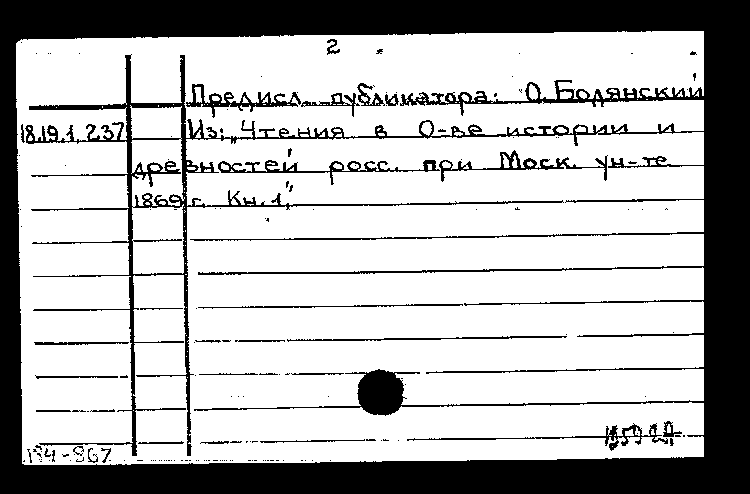 2
Предисл. публикатора: О. Бодянский
18.19.1.237 Из: „Чтения в О-ве истории и
древностей росс. при Моск. ун-те
1869 г. Кн. 1”
194-867